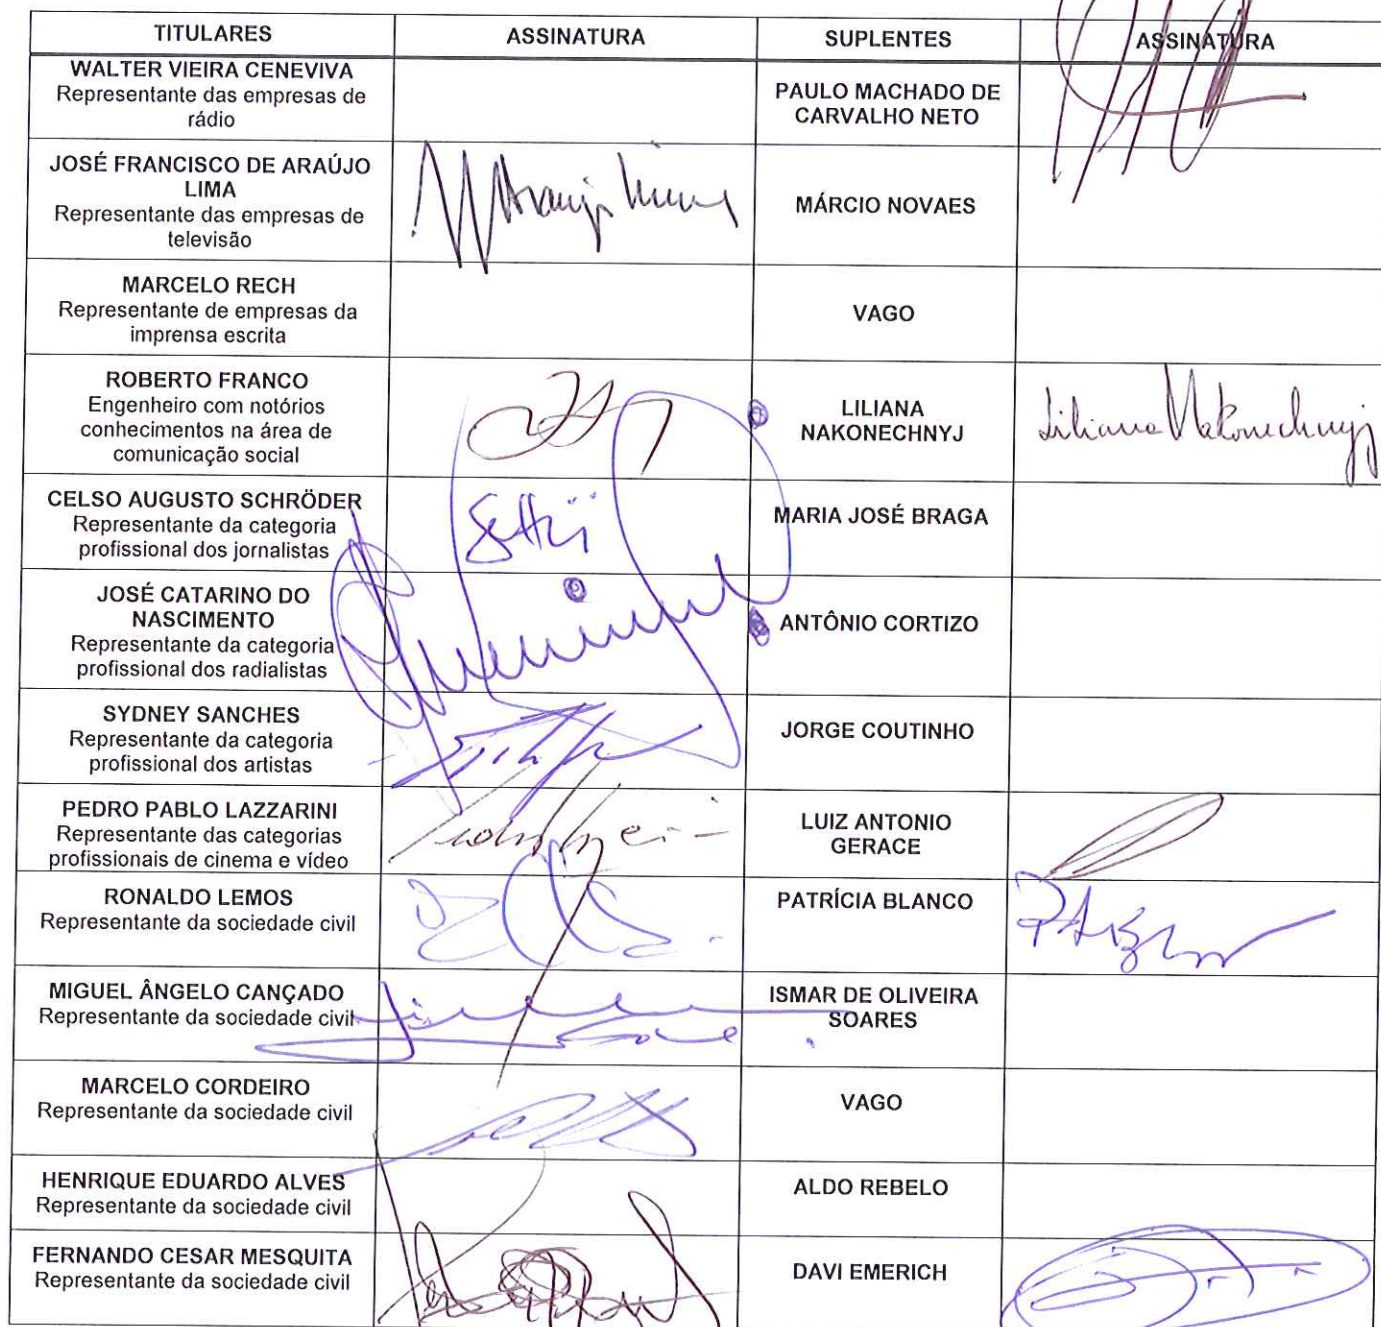 TITULARES ASSINATURA SUPLENTES ASSINATURA
WALTER VIEIRA CENEVIVA
Representante das empresas de
rádio
PAULO MACHADO DE
CARVALHO NETO
JOSÉ FRANCISCO DE ARAÚJO
LIMA
Representante das empresas de
televisão
Araujo Lima
MÁRCIO NOVAES
MARCELO RECH
Representante de empresas da
imprensa escrita
VAGO
ROBERTO FRANCO
Engenheiro com notórios
conhecimentos na área de
comunicação social
LILIANA
NAKONECHNYJ
Liliana Nakonechnyj
CELSO AUGUSTO SCHRÖDER
Representante da categoria
profissional dos jornalistas
MARIA JOSÉ BRAGA
JOSÉ CATARINO DO
NASCIMENTO
Representante da categoria
profissional dos radialistas
ANTÔNIO CORTIZO
SYDNEY SANCHES
Representante da categoria
profissional dos artistas
JORGE COUTINHO
PEDRO PABLO LAZZARINI
Representante das categorias
profissionais de cinema e vídeo
LUIZ ANTONIO
GERACE
RONALDO LEMOS
Representante da sociedade civil
PATRÍCIA BLANCO
MIGUEL ÂNGELO CANÇADO
Representante da sociedade civil
ISMAR DE OLIVEIRA
SOARES
MARCELO CORDEIRO
Representante da sociedade civil
VAGO
HENRIQUE EDUARDO ALVES
Representante da sociedade civil
ALDO REBELO
FERNANDO CESAR MESQUITA
Representante da sociedade civil
DAVI EMERICH